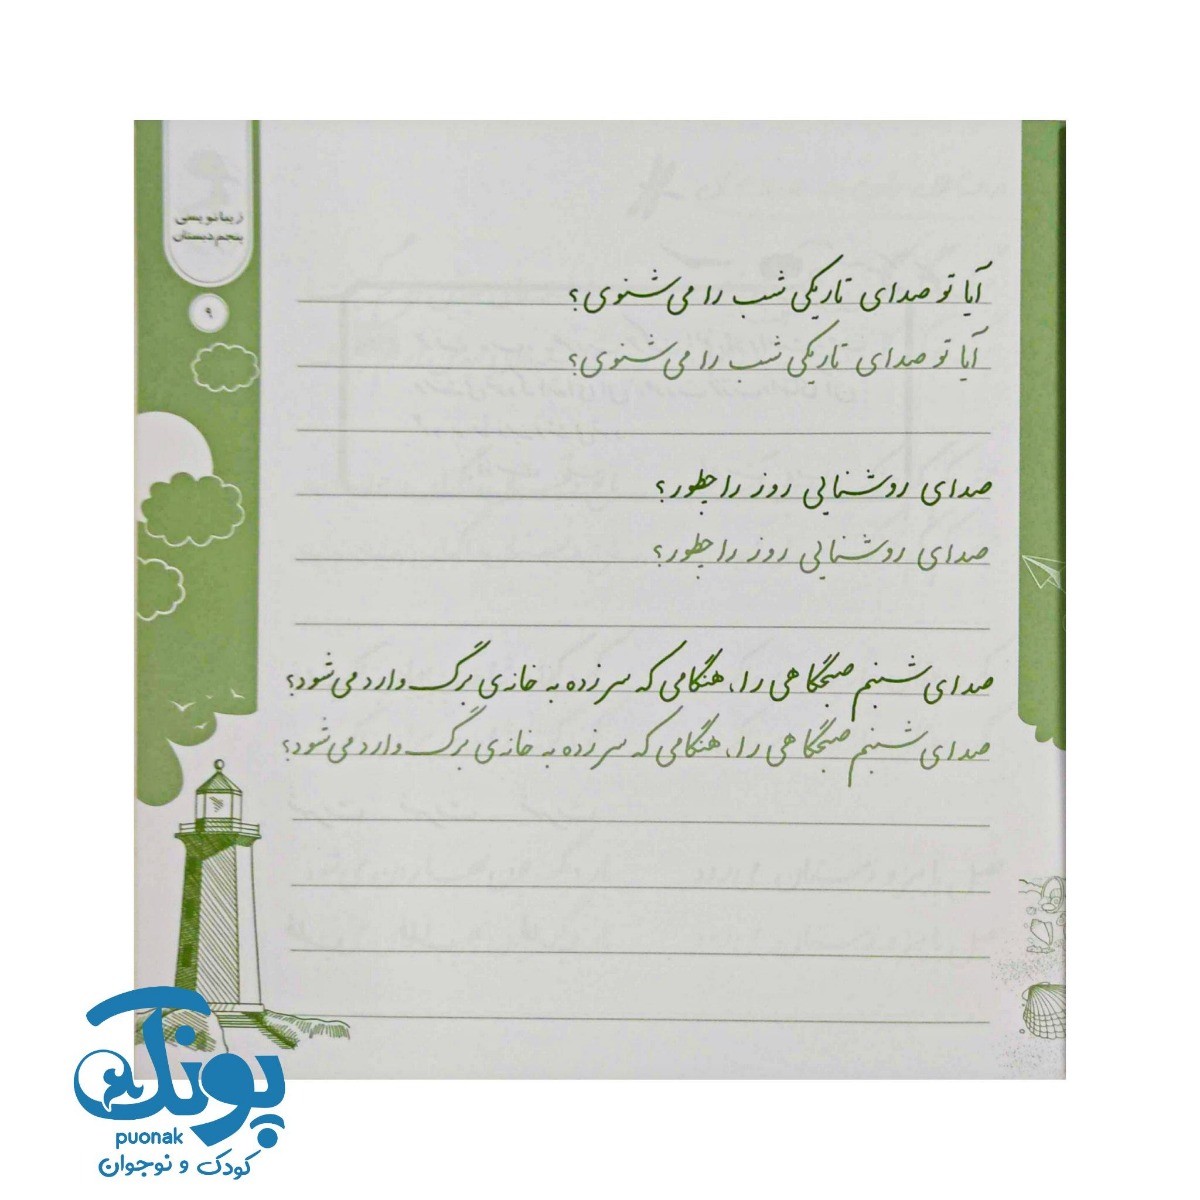 زیبانویسی
پنجم دبستان
۹
آیا تو صدای تاریکی شب را می‌شنوی؟
آیا تو صدای تاریکی شب را می‌شنوی؟
صدای روشنایی روز را چطور؟
صدای روشنایی روز را چطور؟
صدای شبنم صبحگاهی را، هنگامی که سرزده به خانه‌ی برگ وارد می‌شود؟
صدای شبنم صبحگاهی را، هنگامی که سرزده به خانه‌ی برگ وارد می‌شود؟
پونک
puonak
کودک و نوجوان